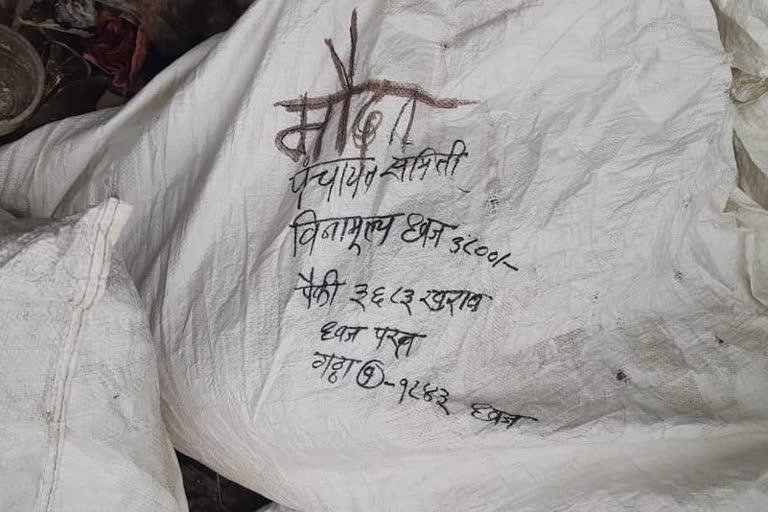 मौदा
पंचायत समिती
विनामूल्य ध्वज ३८००/-
पैकी ३६८३ खराब
ध्वज परत
गठ्ठा १-१८४३ ध्वज